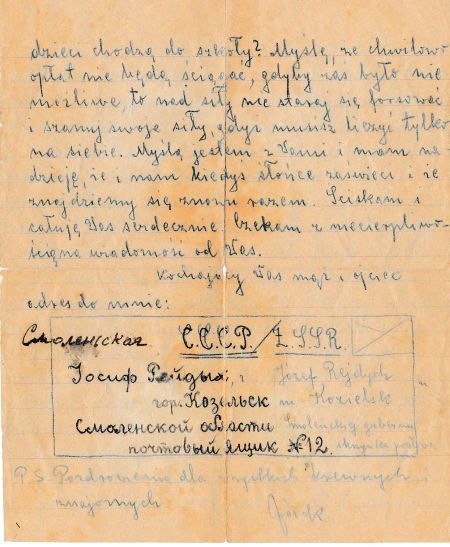 dzieci chodzą do szkoły? Myślę, że chwilowo
opłat nie będą ściągać, gdyby zaś było nie
możliwe, to nad siły nie staraj się forsować
i szanuj swoje siły, gdyż musisz liczyć tylko
na siebie. Myślą jestem z Wami i mam na-
dzieję, że i nam kiedyś słońce zaświeci i że
znajdziemy się znowu razem. Ściskam i
całuję Was serdecznie. Czekam z niecierpliwo-
ścią na wiadomość od Was.
Kochający Was mąż i ojciec
adres do mnie:
Смоленская С.С.С.Р. / Z.S.S.R.
Іосиф Рейдых, Józef Rejdych
гор. Козельск m. Kozielsk
Смоленской области Smoleńskiej
почтовый ящик №12. skrzynka
P.S. Pozdrowienia dla wszystkich krewnych i
znajomych
Józek